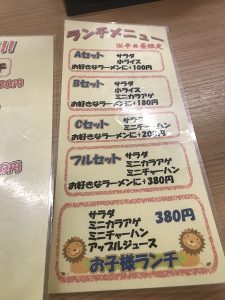 ランチメニュー
※平日昼限定
Aセット サラダ
小ライス
お好きなラーメンに+100円
Bセット サラダ
小ライス
ミニカラアゲ
お好きなラーメンに+180円
Cセット サラダ
ミニチャーハン
お好きなラーメンに+200円
フルセット サラダ
ミニカラアゲ
ミニチャーハン
お好きなラーメンに+380円
サラダ 380円
ミニカラアゲ
ミニチャーハン
アップルジュース
お子様ランチ